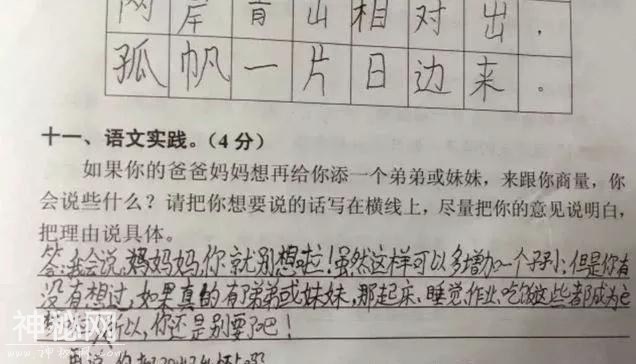 两岸青山相对出，
孤帆一片日边来。
十一、语文实践。(4分)
如果你的爸爸妈妈想再给你添一个弟弟或妹妹，来跟你商量，你
会说些什么？请把你想要说的话写在横线上，尽量把你的意见说明白，
把理由说具体。
答:我会说，妈妈妈，你就别想啦！虽然这样可以多增加一个孩子，但是你有
没有想过，如果真的有弟弟或妹妹，那起床、睡觉、作业、吃饭这些都成为
所以，你还是别要了吧！
神秘网